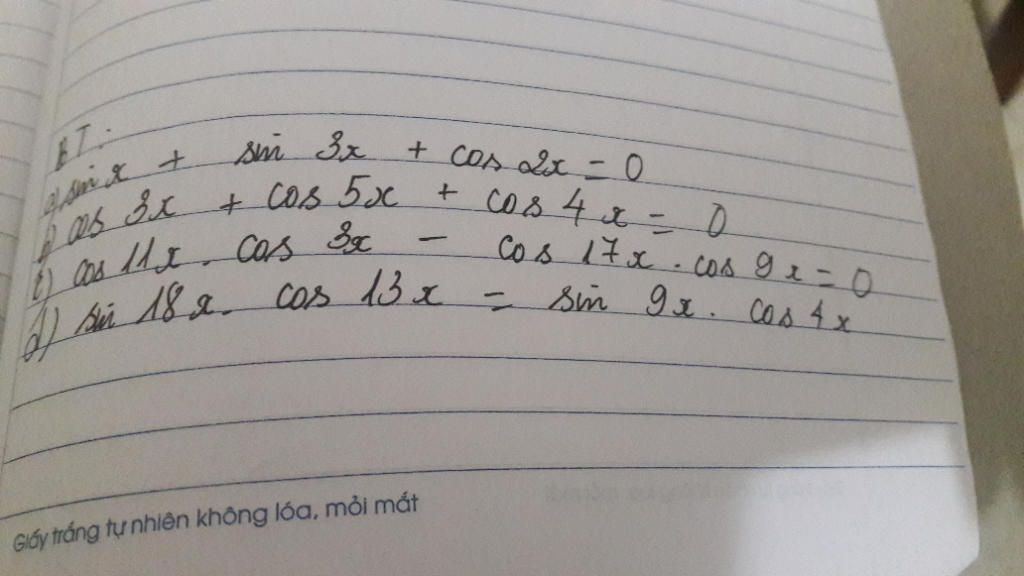 BT:
a) sin x + sin 3x + cos 2x = 0
b) cos 3x + cos 5x + cos 4x = 0
c) cos 11x . cos 3x - cos 17x . cos 9x = 0
d) sin 18x . cos 13x = sin 9x . cos 4x
Giấy trắng tự nhiên không lóa, mỏi mắt